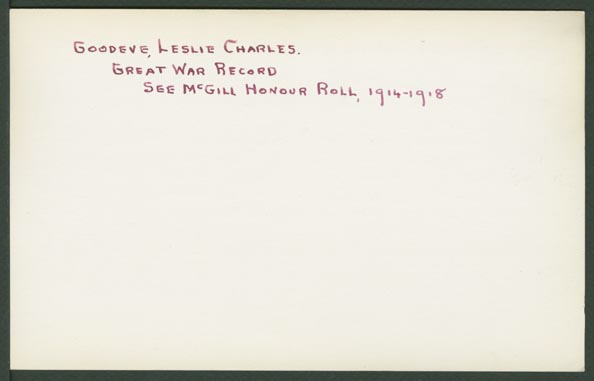 GOODEVE, LESLIE CHARLES.
GREAT WAR RECORD
SEE McGILL HONOUR ROLL, 1914-1918